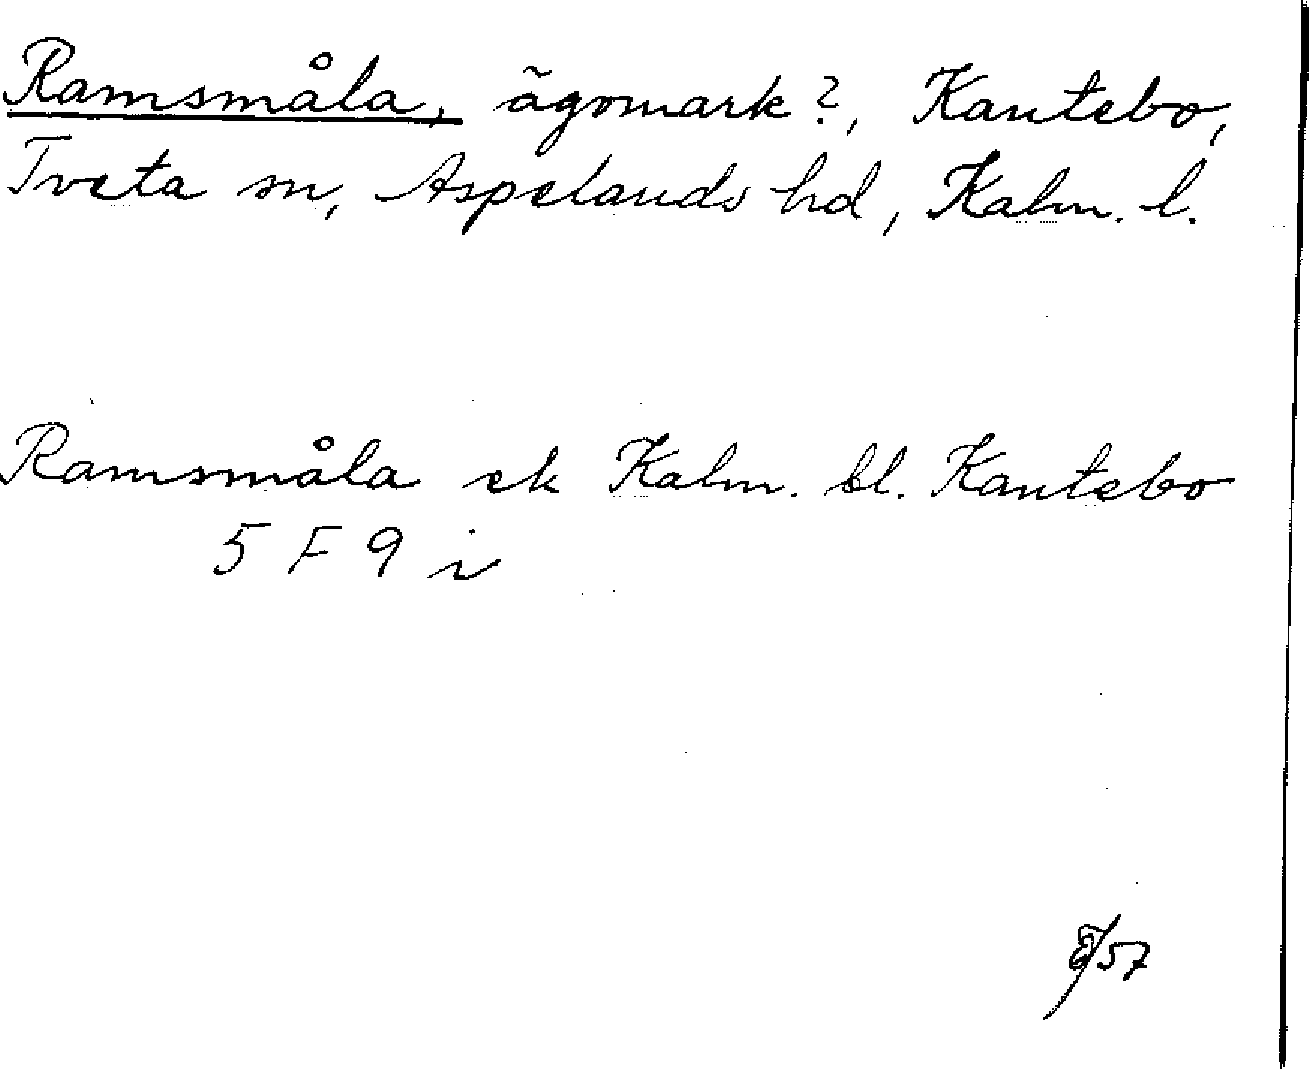 Ramsmåla, ägomark?, Kantebo,
Tveta sn, Aspelands hd, Kalm. l.
Ramsmåla ek Kalm. bl. Kantebo
5 F 9 i
/57